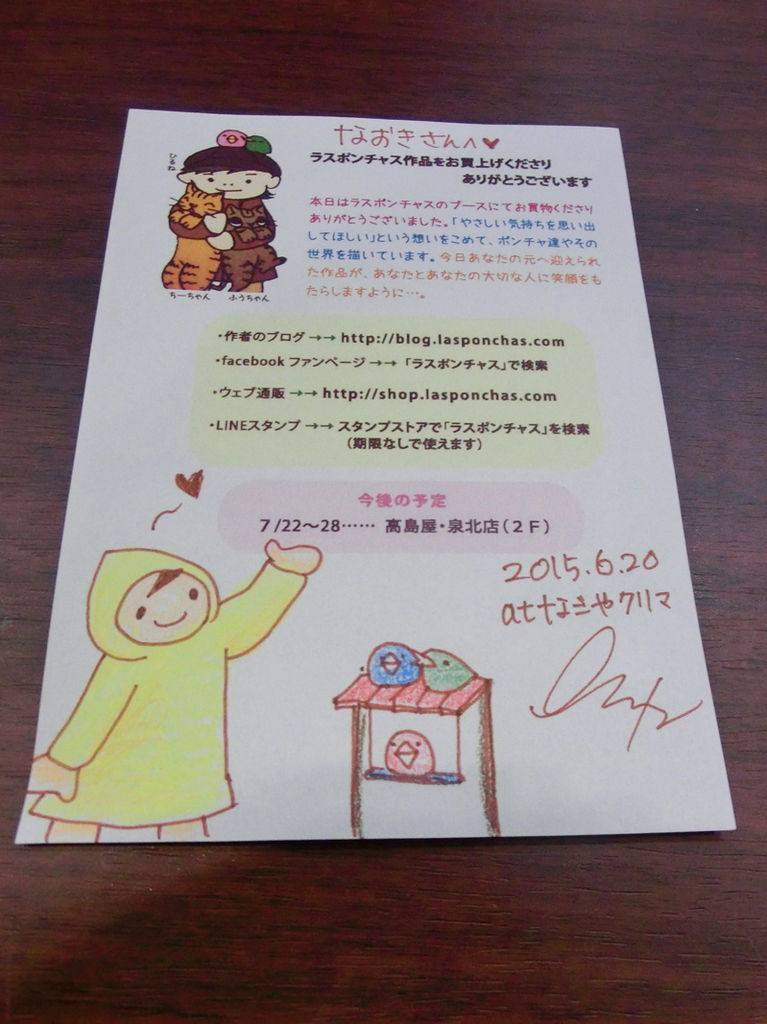 なおきさんへ♥
ラスポンチャス作品をお買上げくださり
ありがとうございます
ひるね
ちーちゃん ふうちゃん
本日はラスポンチャスのブースにてお買物くださり
ありがとうございました。「やさしい気持ちを思い出
してほしい」という想いをこめて、ポンチャ達やその
世界を描いています。今日あなたの元へ迎えられ
た作品が、あなたとあなたの大切な人に笑顔をも
たらしますように…。
・作者のブログ →→ http://blog.lasponchas.com
・facebook ファンページ →→ 「ラスポンチャス」で検索
・ウェブ通販 →→ http://shop.lasponchas.com
・LINEスタンプ →→ スタンプストアで「ラスポンチャス」を検索
(期限なしで使えます)
今後の予定
7/22〜28…… 高島屋・泉北店(2F)
2015.6.20
atなきやクリマ